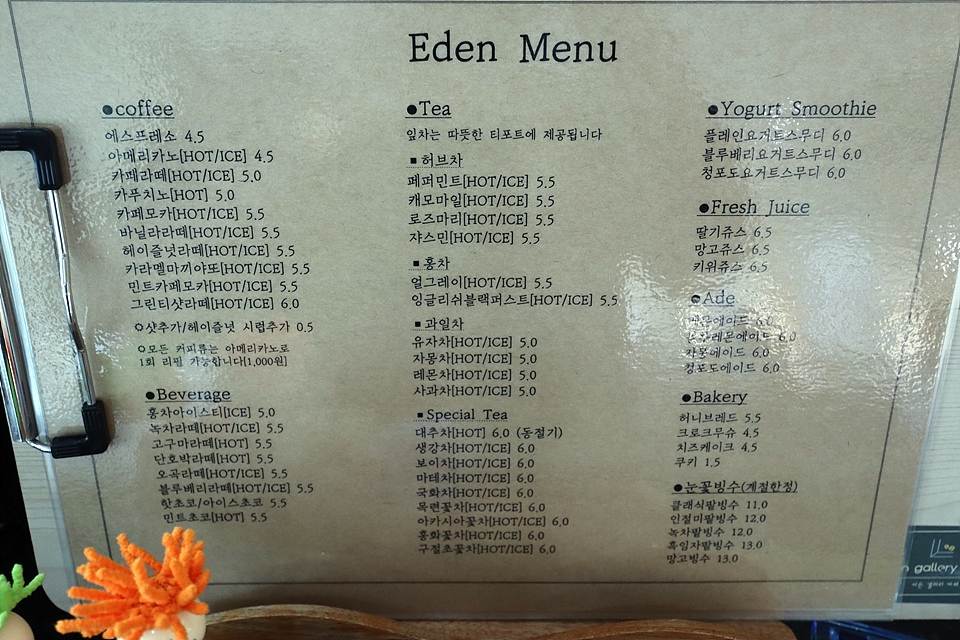 Eden Menu
●coffee
에스프레소 4.5
아메리카노[HOT/ICE] 4.5
카페라떼[HOT/ICE] 5.0
카푸치노[HOT] 5.0
카페모카[HOT/ICE] 5.5
바닐라라떼[HOT/ICE] 5.5
헤이즐넛라떼[HOT/ICE] 5.5
카라멜마끼야또[HOT/ICE] 5.5
민트카페모카[HOT/ICE] 5.5
그린티샷라떼[HOT/ICE] 6.0
✿샷추가/헤이즐넛 시럽추가 0.5
✿모든 커피류는 아메리카노로
1회 리필 가능합니다[1,000원]
●Beverage
홍차아이스티[ICE] 5.0
녹차라떼[HOT/ICE] 5.5
고구마라떼[HOT] 5.5
단호박라떼[HOT] 5.5
오곡라떼[HOT/ICE] 5.5
블루베리라떼[HOT/ICE] 5.5
핫초코/아이스초코 5.5
민트초코[HOT] 5.5
●Tea
잎차는 따뜻한 티포트에 제공됩니다
■허브차
페퍼민트[HOT/ICE] 5.5
캐모마일[HOT/ICE] 5.5
로즈마리[HOT/ICE] 5.5
쟈스민[HOT/ICE] 5.5
■홍차
얼그레이[HOT/ICE] 5.5
잉글리쉬블랙퍼스트[HOT/ICE] 5.5
■과일차
유자차[HOT/ICE] 5.0
자몽차[HOT/ICE] 5.0
레몬차[HOT/ICE] 5.0
사과차[HOT/ICE] 5.0
■Special Tea
대추차[HOT] 6.0 (동절기)
생강차[HOT/ICE] 6.0
보이차[HOT/ICE] 6.0
마테차[HOT/ICE] 6.0
국화차[HOT/ICE] 6.0
목련꽃차[HOT/ICE] 6.0
아카시아꽃차[HOT/ICE] 6.0
홍화꽃차[HOT/ICE] 6.0
구절초꽃차[HOT/ICE] 6.0
●Yogurt Smoothie
플레인요거트스무디 6.0
블루베리요거트스무디 6.0
청포도요거트스무디 6.0
●Fresh Juice
딸기쥬스 6.5
망고쥬스 6.5
키위쥬스 6.5
●Ade
레몬에이드 6.0
6.0
자몽에이드 6.0
청포도에이드 6.0
●Bakery
허니브레드 5.5
크로크무슈 4.5
치즈케이크 4.5
쿠키 1.5
●눈꽃빙수(계절한정)
클래식팥빙수 11.0
인절미팥빙수 12.0
녹차팥빙수 12.0
흑임자팥빙수 13.0
망고빙수 13.0
gallery